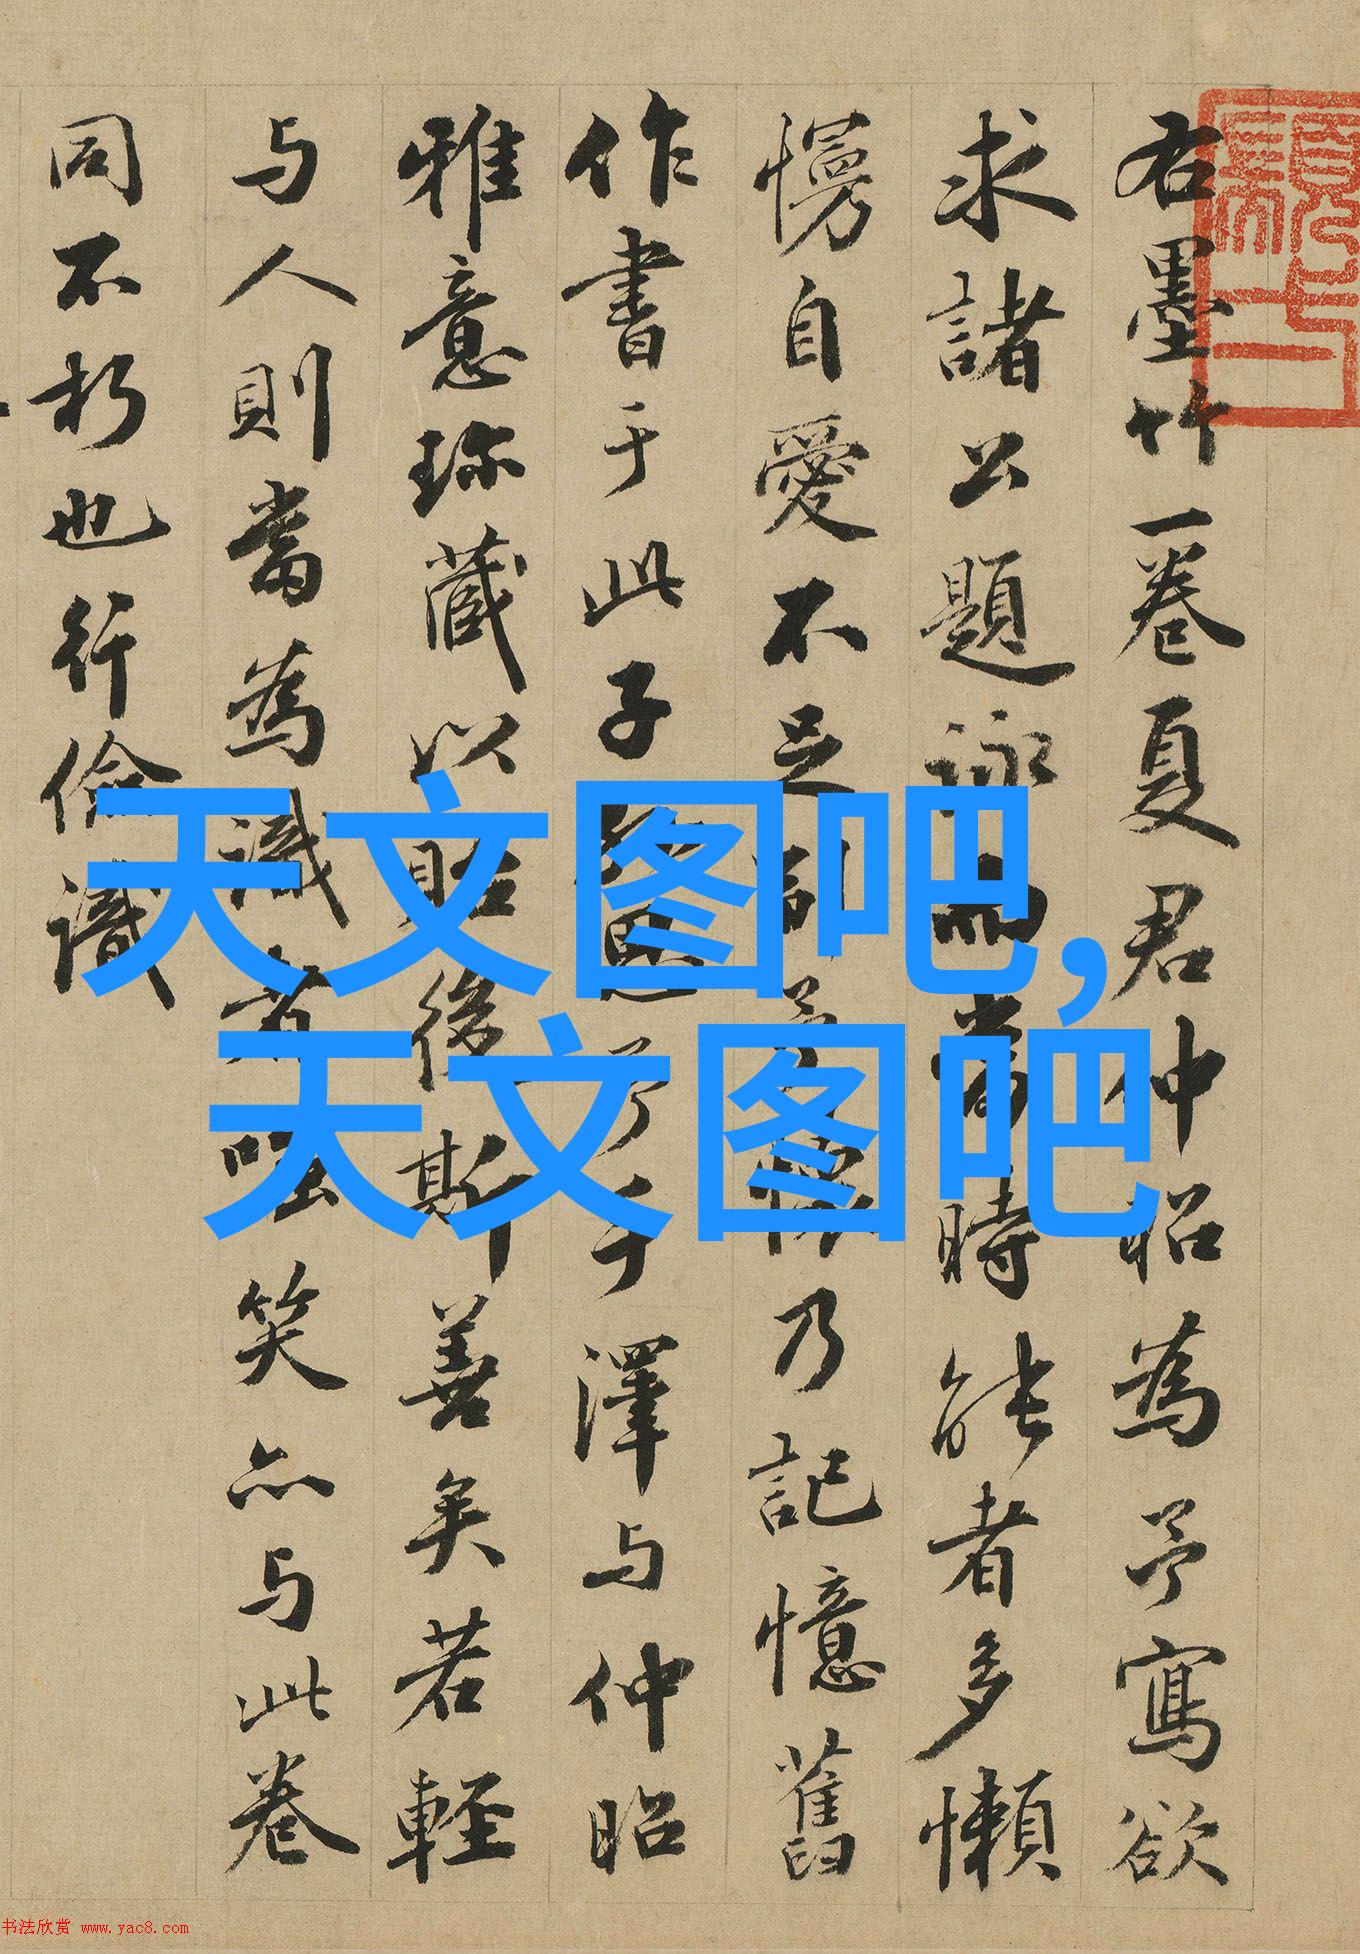 右墨竹一卷夏君仲昭為予寫欲
求諸公題詠而當時能者多懶
慢自愛不足副予懷乃記憶舊
作書于此子孫思予手澤与仲昭
雅意珎藏以貽後斯善矣若輕
与人則當為識者嗤笑亦与此卷
同不朽也行儉識
天文图吧,
天文图吧
书法欣赏 www.yac8.com